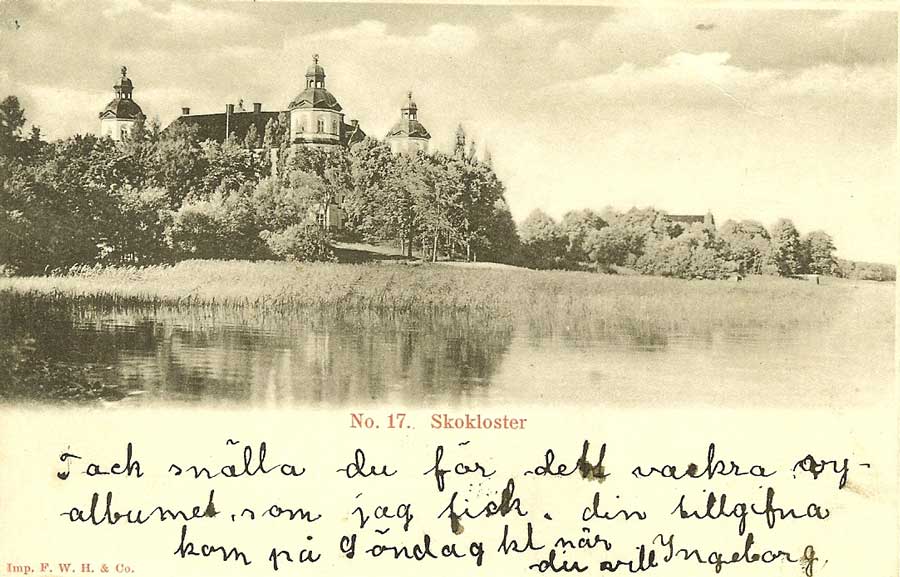 No. 17. Skokloster
Tack snälla du för dett vackra vy-
albumet, som jag fick. din tillgifna
kom på Söndag kl när
du vill Ingeborg
Imp. F. W. H. & Co.